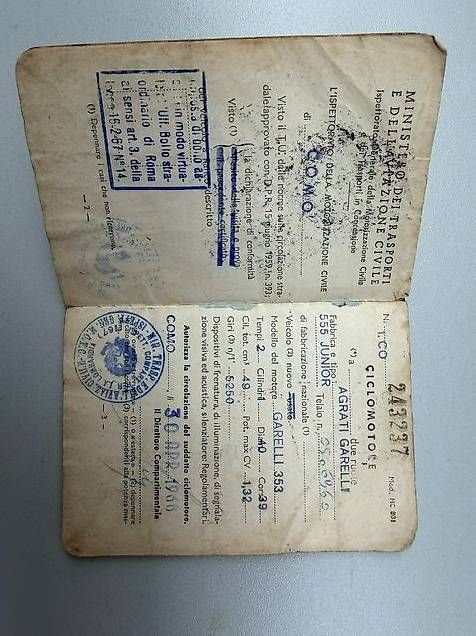 MINISTERO DEI TRASPORTI
E DELL'AVIAZIONE CIVILE
Ispettorato Generale della Motorizzazione Civile
e dei Trasporti in Concessione
L'ISPETTORATO DELLA MOTORIZZAZIONE CIVILE
di COMO
Visto il T.U. delle norme sulla circolazione stra-
dale approvato con D.P.R. 15 giugno 1959, n. 393;
Visto (1)
la dichiarazione di conformità
descritto
in modo virtua-
Uff. Bollo stra-
ordinario di Roma
ai sensi art. 3, della
(1) Depennare i casi che non ricorrono.
- 2 -
N. T. CO 243237
Mod. MC 801
CICLOMOTORE
(*) a due ruote
Fabbrica e tipo AGRATI GARELLI
555 JUNIOR Telaio n.
di fabbricazione nazionale (1)
Veicolo (2) nuovo - usato
Modello del motore GARELLI 353
Tempi 2 Cilindri 1 Dia. 40 Cor. 39
Cil. tot. cm³ 49 Pot. max CV 1,32
Giri (3) n/1' 5250
Dispositivi di frenatura, di illuminazione, di segnala-
zione visiva ed acustica, silenziatore: Regolamentari.
Autorizza la circolazione del suddetto ciclomotore.
COMO, li 30 APR. 1968
Il Direttore Compartimentale
- 3 -